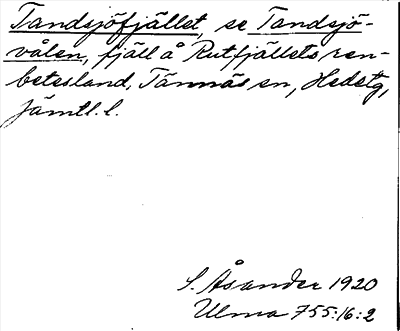 Tandsjöfjället, se Tandsjö-
vålen, fjäll å Rutfjällets ren-
betesland, Tännäs sn, Hedetg,
Jämtl. l.
S. Åsander 1920
Ulma 755:16:2